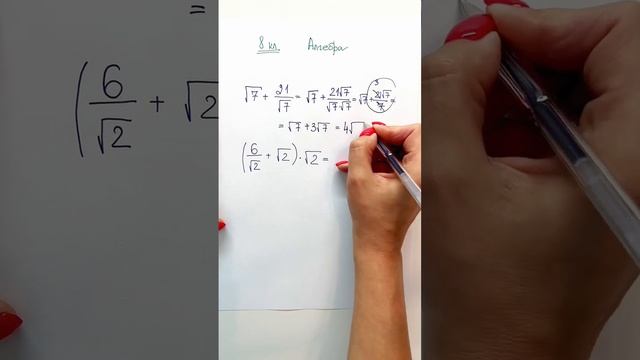 8 кл. Алгебра
√7 + 21/√7 = √7 + 21√7/√7√7 = √7 + 21√7/7 =
= √7 + 3√7 = 4√
(6/√2 + √2) · √2 =